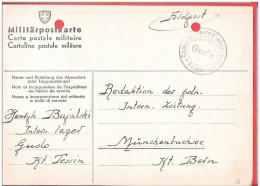 Militärpostkarte
Carte postale militaire
Cartolina postale militare
Feldpost
Gudo
Name und Einteilung des Absenders
oder Truppenstempel
Nom et incorporation de l'expéditeur
ou timbre de service
Nome e incorporazione del mittente
o bollo di servizio
Henryk Bujalski
Intern. Lager
Gudo
Kt. Tessin
Redaktion der poln.
Intern. Zeitung.
Münchenbuchsee
Kt. Bern